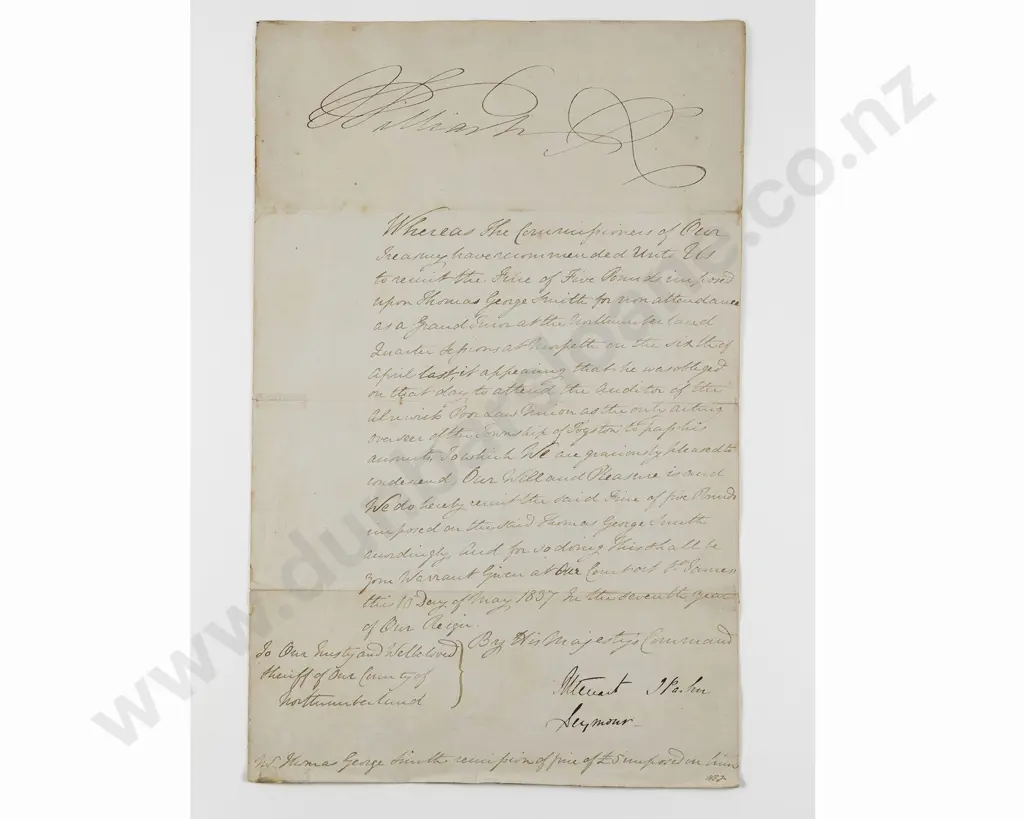 William R.
Whereas The Commissioners of Our
Treasury have recommended Unto Us
to remit the Fine of Five Pounds imposed
upon Thomas George Smith for non attendance
as a Grand Juror at the Northumberland
Quarter Sessions at Morpeth on the sixth of
April last, it appearing that he was obliged
on that day to attend the Auditor of the
Alnwick Poor Law Union as the only acting
overseer of the Township of Togston to pass his
accounts, To which We are graciously pleased to
condescend Our Will and Pleasure is and
We do hereby remit the said Fine of five Pounds
imposed on the said Thomas George Smith
accordingly, And for so doing This shall be
your Warrant Given at Our Court at St James
this 10 Day of May 1837 In the seventh year
of Our Reign.
By His Majesty's Command
To Our Trusty and Welbeloved
Sheriff of Our County of
Northumberland
Steuart
Seymour
Thomas George Smith remission of fine of £5 imposed on him
www.dunbarsloane.co.nz